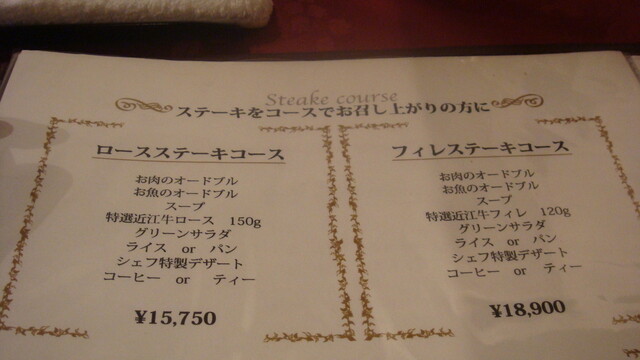 Steake course
ステーキをコースでお召し上がりの方に
ロースステーキコース
お肉のオードブル
お魚のオードブル
スープ
特選近江牛ロース 150g
グリーンサラダ
ライス or パン
シェフ特製デザート
コーヒー or ティー
¥15,750
フィレステーキコース
お肉のオードブル
お魚のオードブル
スープ
特選近江牛フィレ 120g
グリーンサラダ
ライス or パン
シェフ特製デザート
コーヒー or ティー
¥18,900